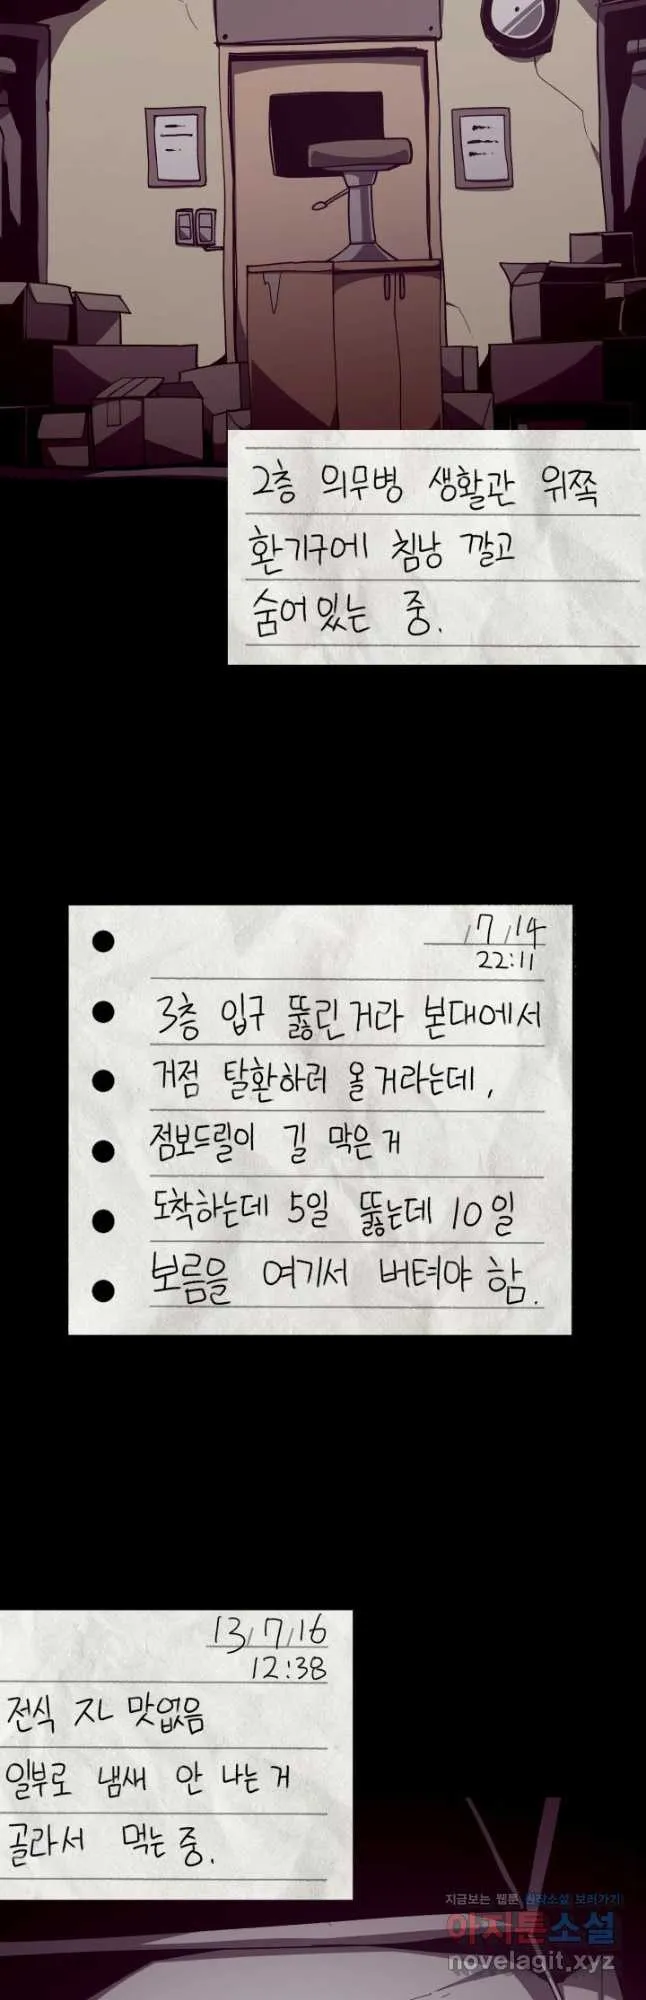 2층 의무병 생활관 위쪽
환기구에 침낭 깔고
숨어있는 중.
/7/14
22:11
3층 입구 뚫린거라 본대에서
거점 탈환하러 올거라는데,
점보드릴이 길 막은거
도착하는데 5일 뚫는데 10일
보름을 여기서 버텨야 함.
13/7/16
12:38
전식 ㅈㄴ 맛없음
일부로 냄새 안 나는거
골라서 먹는중.
지금보는 웹툰 원작소설 보러가기
아지툰소설
novelagit.xyz